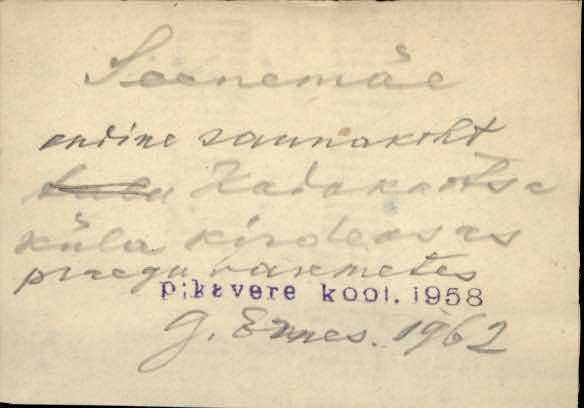 Seenemäe
endine saunakoht
Kadakaotsa
küla kirdeosas
praegu varemetes
Pikavere kool. 1958
J. Ennes. 1962